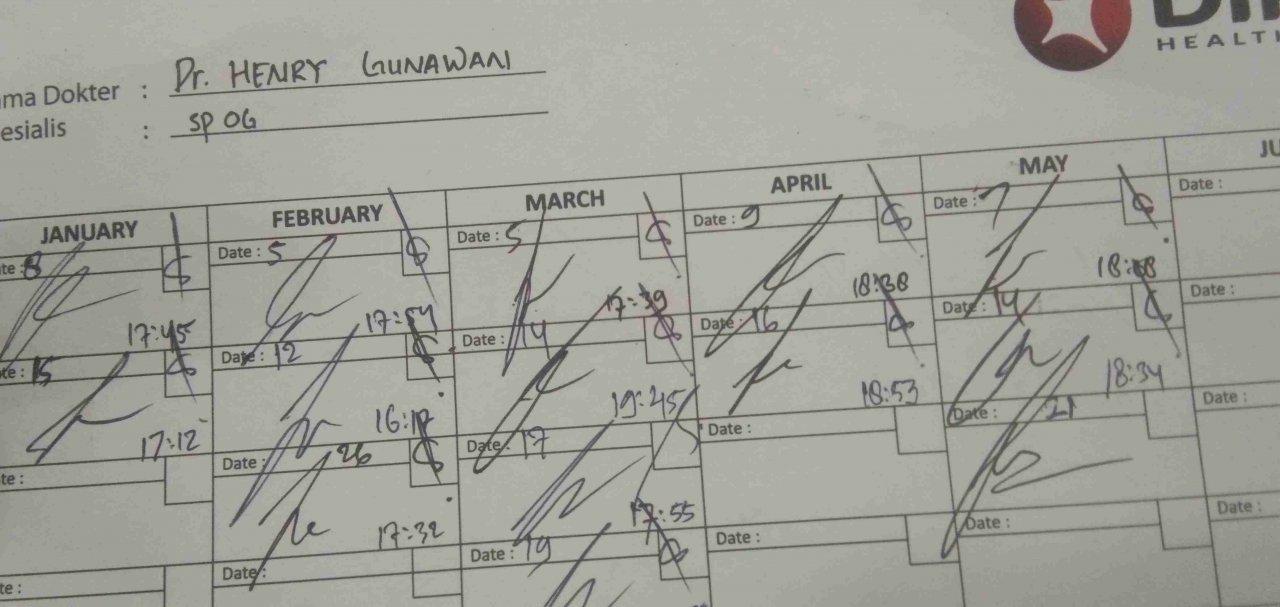 HEALT
ama Dokter : Dr. HENRY GUNAWAN
esialis : SP OG
JANUARY FEBRUARY MARCH APRIL MAY JU
te: 8 Date : 5 Date : 5 Date : 9 Date : 7 Date :
17:45 17:54 17:39 18:38
te: 15 Date : 12 Date : 14 Date : 16 Date : 14 Date :
17:12 16:12 19:45 18:53 18:34
te : Date : 26 Date : 17 Date : Date : 21 Date :
17:32 17:55
te : Date : Date : 19 Date : Date : Date :